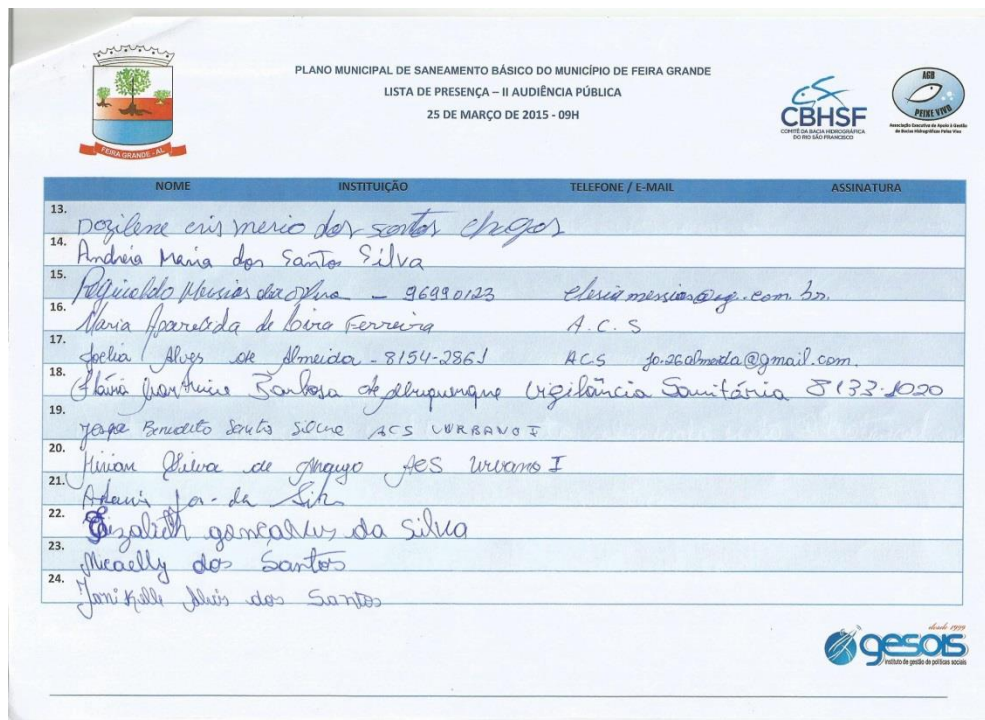 PLANO MUNICIPAL DE SANEAMENTO BÁSICO DO MUNICÍPIO DE FEIRA GRANDE
LISTA DE PRESENÇA – II AUDIÊNCIA PÚBLICA
25 DE MARÇO DE 2015 - 09H
FEIRA GRANDE - AL
CBHSF
COMITÊ DA BACIA HIDROGRÁFICA
DO RIO SÃO FRANCISCO
AGB
PEIXE VIVO
Associação Executiva de Apoio à Gestão
de Bacias Hidrográficas Peixe Vivo
NOME INSTITUIÇÃO TELEFONE / E-MAIL ASSINATURA
13. dos santos
14. Andréia Maria dos Santos Silva
15. Reginaldo - 96990123
16. Maria Aparecida de Lira Ferreira A.C.S
17. Joelia Alves de Almeida - 8154-2861 ACS jo.26almeida@gmail.com
18. Barbosa de Albuquerque Vigilância Sanitária 8133-1020
19. Benedito Santos ACS URBANO I
20. Silva de ACS Urbano I
21. da
22. Elizabeth gonçalves da Silva
23. Micaelly dos Santos
24. Janikelle Alves dos Santos
desde 1999
gesois
instituto de gestão de políticas sociais